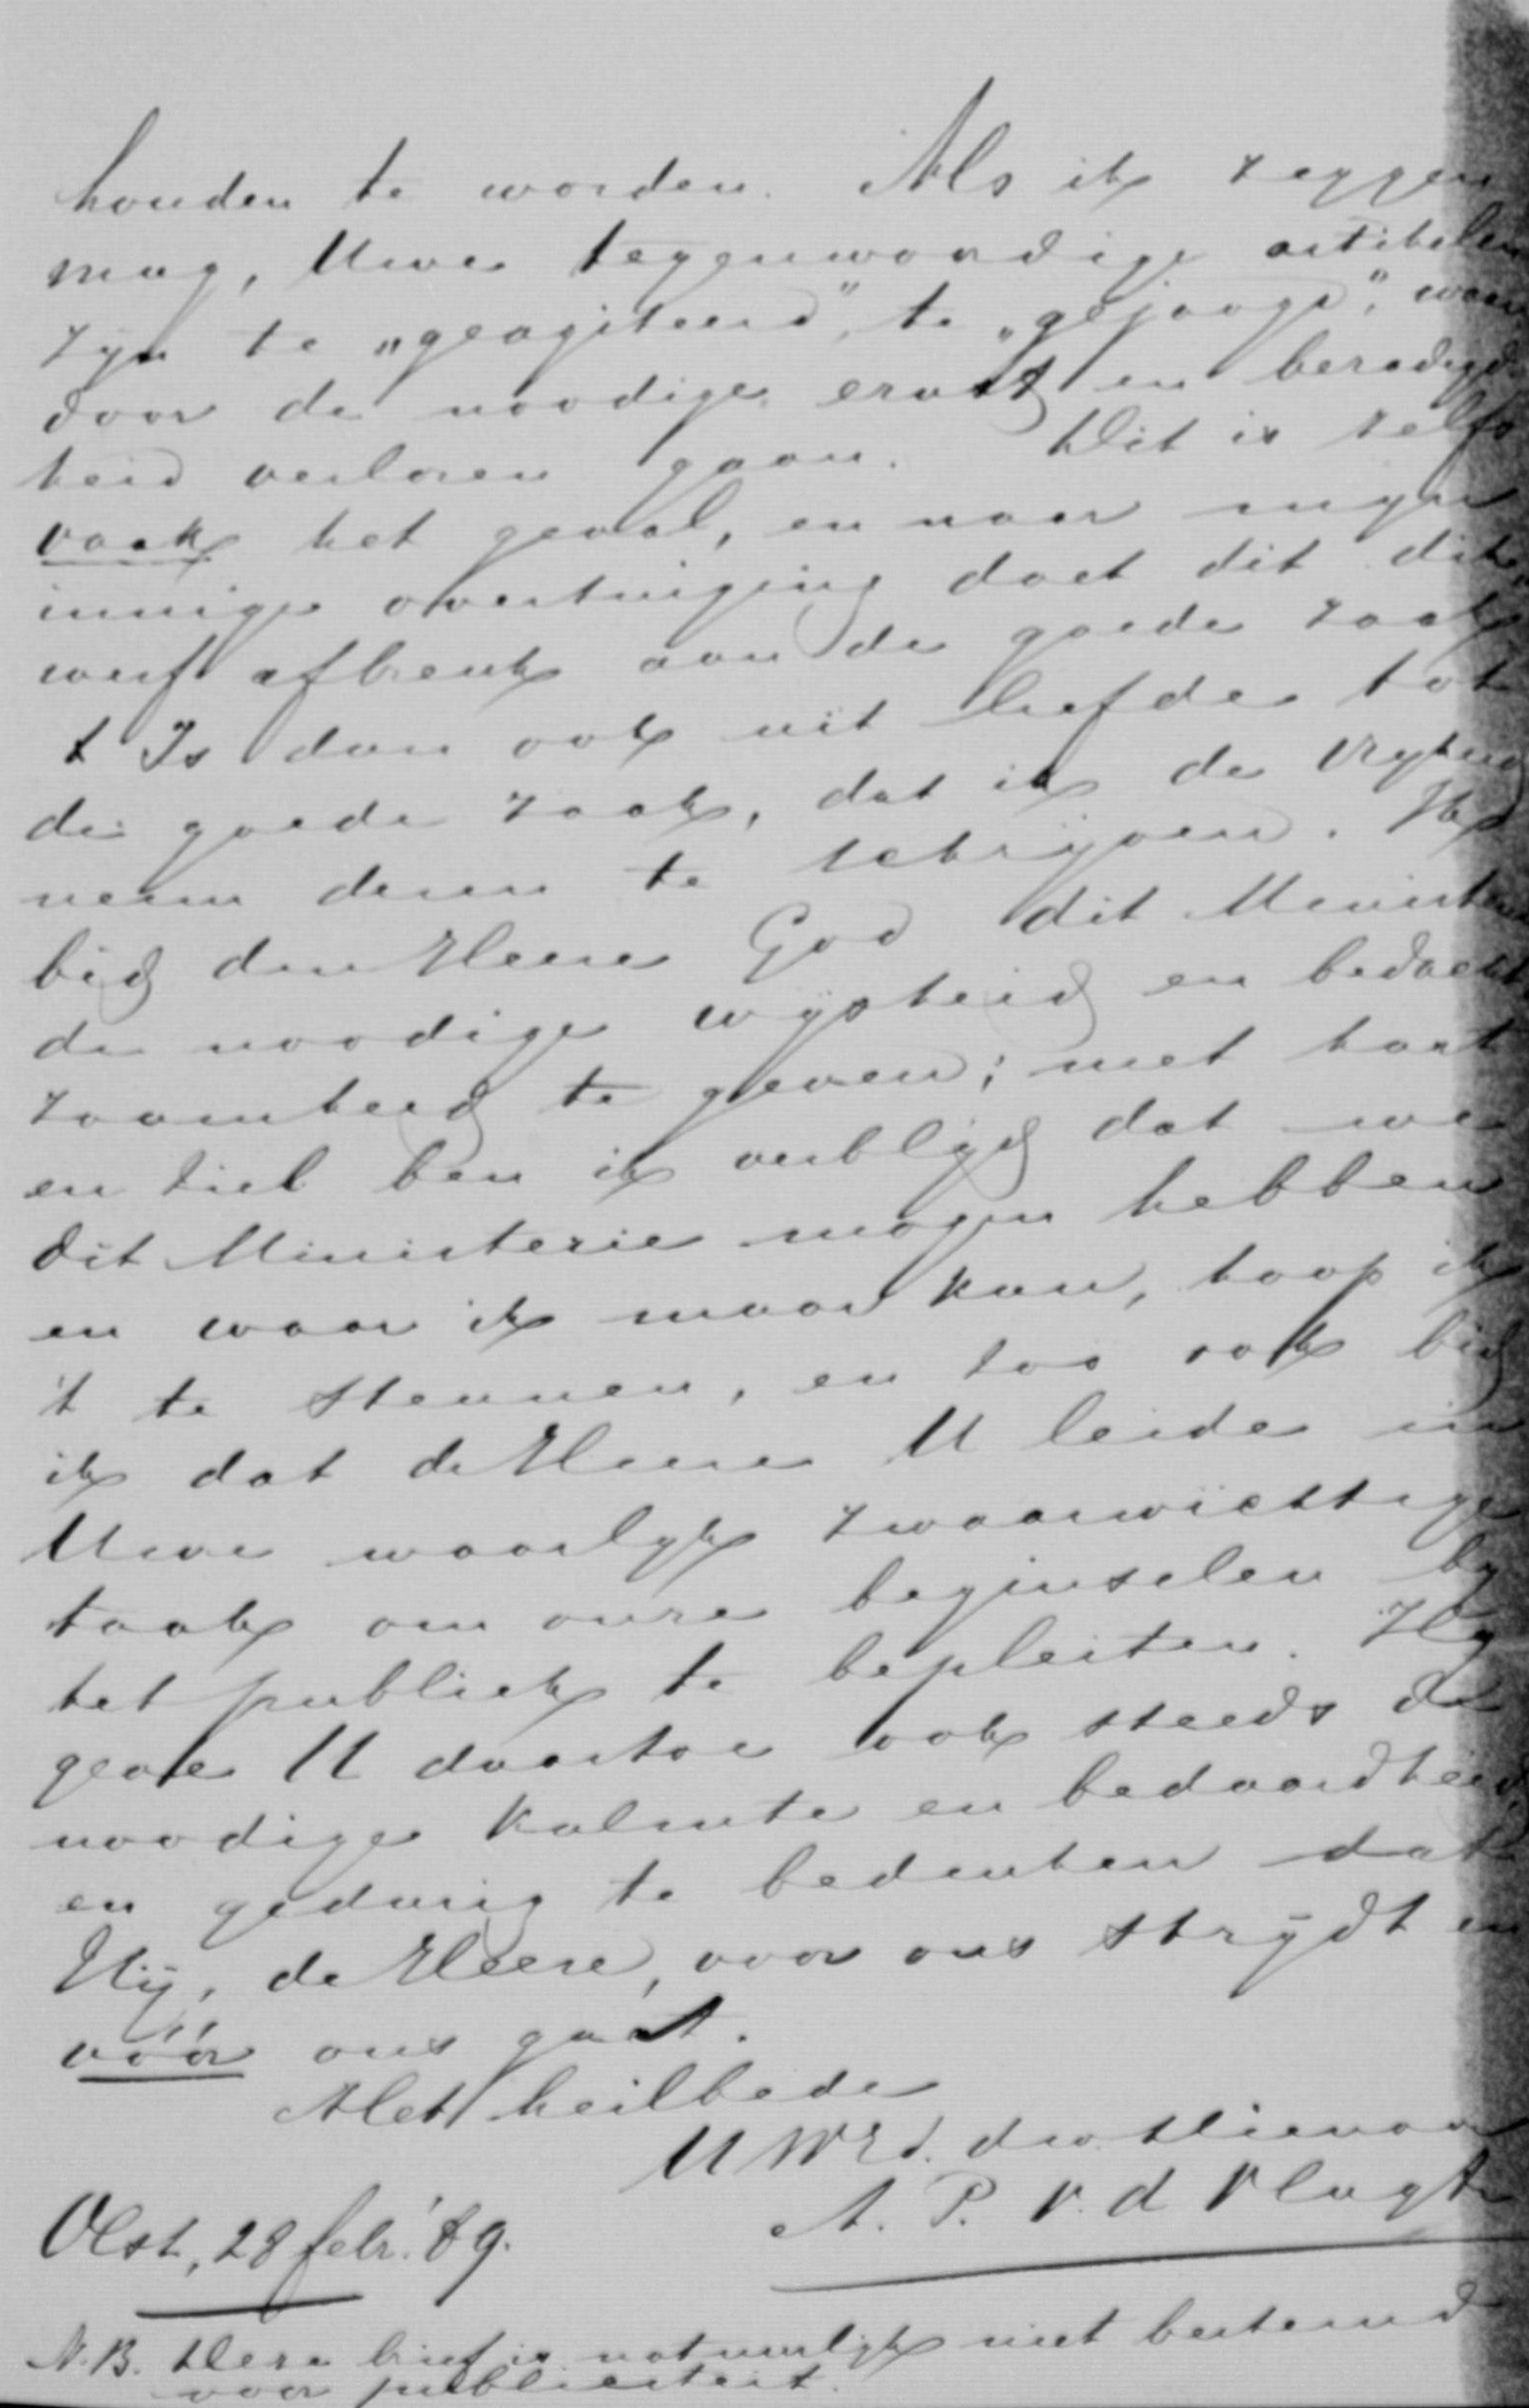 houden te worden. Als ik zeggen
mag, Uwe tegenwoordige artikelen
zyn te „geagiteerd”, te „gejaagd”, waar
door de noodige ernst en beradigd
heid verloren gaan. Dit is zelfs
vaak het geval, en naar myn
innige overtuiging doet dit dik
werf afbreuk aan de goede zaak.
t Is dan ook uit liefde tot
de goede zaak, dat ik de vryheid
neem dezen te schrijven. Ik
bid den Heere God dit Ministerie
de noodige wysheid en bedacht
zaamheid te geven; met hart
en ziel ben ik verblyd dat we
dit Ministerie mogen hebben
en waar ik maar kan, hoop ik
't te steunen, en zoo ook bid
ik dat de Heere U leide in
Uwe waarlyk zwaarwichtige
taak om onze beginselen by
het publiek te bepleiten. Hy
geve U daartoe ook steeds de
noodige kalmte en bedaardheid
en gedurig te bedenken dat
Hij, de Heere, voor ons strydt en
vóór ons gaat.
Met heilbede
UWEd. dw. dienaar
A. P. v. d Vlugt
Olst, 28 febr. '89.
N.B. Deze brief is natuurlyk niet bestemd
voor publiciteit.